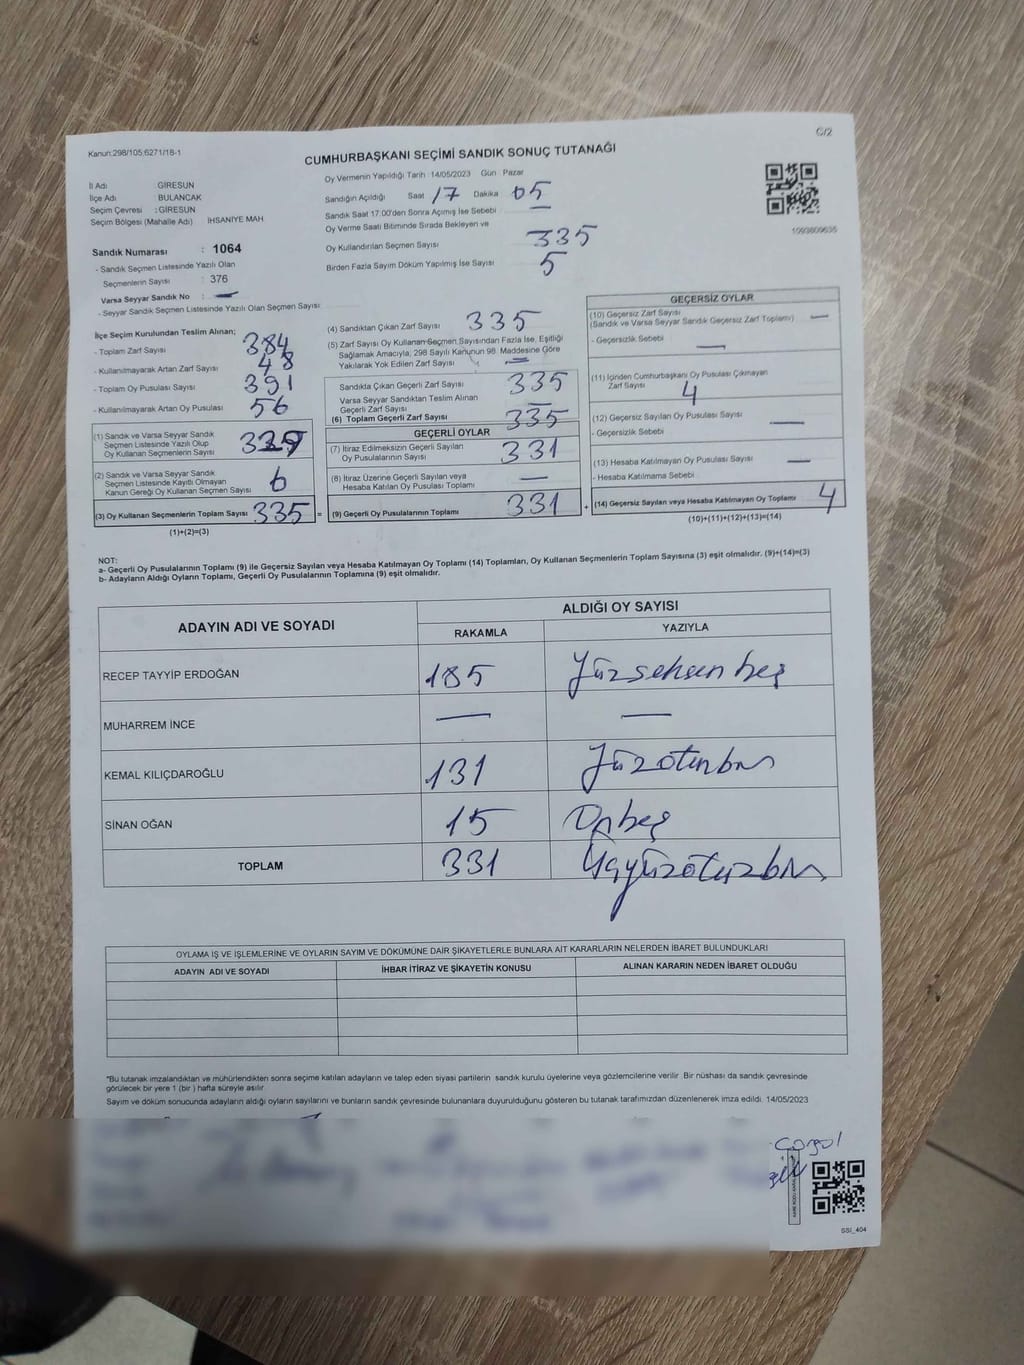 C/2
Kanun:298/105;6271/18-1
CUMHURBAŞKANI SEÇİMİ SANDIK SONUÇ TUTANAĞI
İl Adı GİRESUN
İlçe Adı BULANCAK
Seçim Çevresi : GİRESUN
Seçim Bölgesi (Mahalle Adı) İHSANİYE MAH
Sandık Numarası : 1064
- Sandık Seçmen Listesinde Yazılı Olan
Seçmenlerin Sayısı : 376
Varsa Seyyar Sandık No : —
- Seyyar Sandık Seçmen Listesinde Yazılı Olan Seçmen Sayısı :
Oy Vermenin Yapıldığı Tarih : 14/05/2023 Gün : Pazar
Sandığın Açıldığı Saat 17 Dakika 05
Sandık Saat 17:00'den Sonra Açılmış İse Sebebi —
Oy Verme Saati Bitiminde Sırada Bekleyen ve
Oy Kullandırılan Seçmen Sayısı 335
Birden Fazla Sayım Döküm Yapılmış İse Sayısı 5
1093809635
İlçe Seçim Kurulundan Teslim Alınan;
- Toplam Zarf Sayısı 384
- Kullanılmayarak Artan Zarf Sayısı 48
- Toplam Oy Pusulası Sayısı 391
- Kullanılmayarak Artan Oy Pusulası 56
(1) Sandık ve Varsa Seyyar Sandık
Seçmen Listesinde Yazılı Olup
Oy Kullanan Seçmenlerin Sayısı 329
(2) Sandık ve Varsa Seyyar Sandık
Seçmen Listesinde Kayıtlı Olmayan
Kanun Gereği Oy Kullanan Seçmen Sayısı 6
(3) Oy Kullanan Seçmenlerin Toplam Sayısı 335 =
(1)+(2)=(3)
(4) Sandıktan Çıkan Zarf Sayısı 335
(5) Zarf Sayısı Oy Kullanan Seçmen Sayısından Fazla İse, Eşitliği
Sağlamak Amacıyla, 298 Sayılı Kanunun 98. Maddesine Göre
Yakılarak Yok Edilen Zarf Sayısı —
Sandıkta Çıkan Geçerli Zarf Sayısı 335
Varsa Seyyar Sandıktan Teslim Alınan
Geçerli Zarf Sayısı —
(6) Toplam Geçerli Zarf Sayısı 335
GEÇERLİ OYLAR
(7) İtiraz Edilmeksizin Geçerli Sayılan
Oy Pusulalarının Sayısı 331
(8) İtiraz Üzerine Geçerli Sayılan veya
Hesaba Katılan Oy Pusulası Toplamı —
(9) Geçerli Oy Pusulalarının Toplamı 331 +
GEÇERSİZ OYLAR
(10) Geçersiz Zarf Sayısı —
(Sandık ve Varsa Seyyar Sandık Geçersiz Zarf Toplamı)
- Geçersizlik Sebebi —
(11) İçinden Cumhurbaşkanı Oy Pusulası Çıkmayan
Zarf Sayısı 4
(12) Geçersiz Sayılan Oy Pusulası Sayısı —
- Geçersizlik Sebebi
(13) Hesaba Katılmayan Oy Pusulası Sayısı —
- Hesaba Katılmama Sebebi
(14) Geçersiz Sayılan veya Hesaba Katılmayan Oy Toplamı 4
(10)+(11)+(12)+(13)=(14)
NOT:
a- Geçerli Oy Pusulalarının Toplamı (9) ile Geçersiz Sayılan veya Hesaba Katılmayan Oy Toplamı (14) Toplamları, Oy Kullanan Seçmenlerin Toplam Sayısına (3) eşit olmalıdır. (9)+(14)=(3)
b- Adayların Aldığı Oyların Toplamı, Geçerli Oy Pusulalarının Toplamına (9) eşit olmalıdır.
ADAYIN ADI VE SOYADI ALDIĞI OY SAYISI
RAKAMLA YAZIYLA
RECEP TAYYİP ERDOĞAN 185 Yüzseksen beş
MUHARREM İNCE — —
KEMAL KILIÇDAROĞLU 131 Yüzotuzbir
SİNAN OĞAN 15 Onbeş
TOPLAM 331 Üçyüzotuzbir
OYLAMA İŞ VE İŞLEMLERİNE VE OYLARIN SAYIM VE DÖKÜMÜNE DAİR ŞİKAYETLERLE BUNLARA AİT KARARLARIN NELERDEN İBARET BULUNDUKLARI
ADAYIN ADI VE SOYADI İHBAR İTİRAZ VE ŞİKAYETİN KONUSU ALINAN KARARIN NEDEN İBARET OLDUĞU
*Bu tutanak imzalandıktan ve mühürlendikten sonra seçime katılan adayların ve talep eden siyasi partilerin sandık kurulu üyelerine veya gözlemcilerine verilir. Bir nüshası da sandık çevresinde
görülecek bir yere 1 (bir) hafta süreyle asılır.
Sayım ve döküm sonucunda adayların aldığı oyların sayılarını ve bunların sandık çevresinde bulunanlara duyurulduğunu gösteren bu tutanak tarafımızdan düzenlenerek imza edildi. 14/05/2023
SSI_404